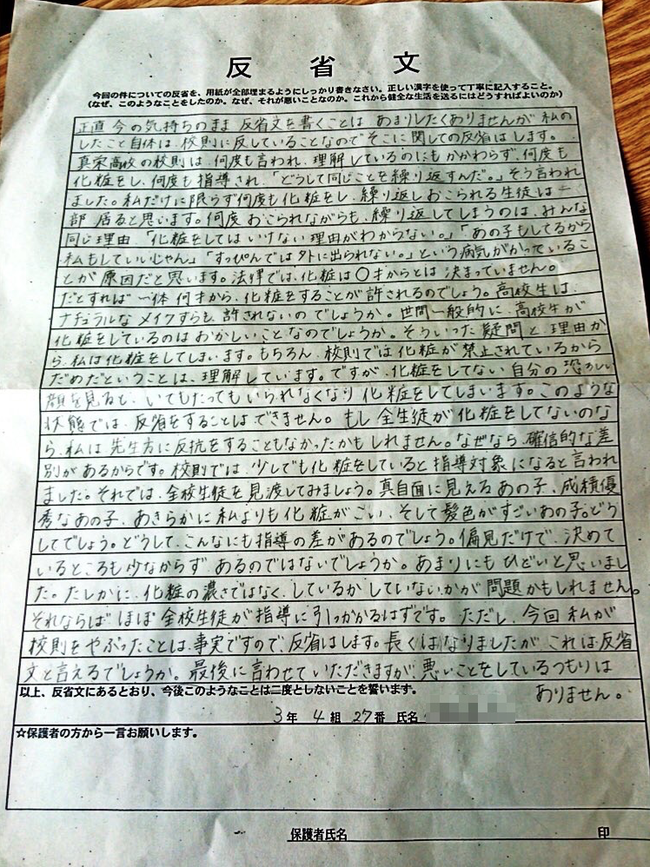 反省文
今回の件についての反省を、用紙が全部埋まるようにしっかり書きなさい。正しい漢字を使って丁寧に記入すること。
（なぜ、このようなことをしたのか。なぜ、それが悪いことなのか。これから健全な生活を送るにはどうすればよいのか）
正直今の気持ちのまま反省文を書くことは、あまりしたくありませんが、私の
したこと自体は、校則に反していることなのでそこに関しての反省はします。
真栄高校の校則は、何度も言われ、理解しているのにもかかわらず、何度も
化粧をし、何度も指導され、「どうして同じことを繰り返すんだ。」そう言われ
ました。私だけに限らず何度も化粧をし、繰り返しおこられる生徒は一
部居ると思います。何度おこられながらも、繰り返してしまうのは、みんな
同じ理由、「化粧をしてはいけない理由がわからない。」「あの子もしてるから
私もしていいじゃん」「すっぴんでは外に出られない。」という病気がかっているこ
とが原因だと思います。法律では、化粧は〇才からとは決まっていません。
だとすれば一体何才から、化粧をすることが許されるのでしょう。高校生は、
ナチュラルなメイクすらも、許されないのでしょうか。世間一般的に、高校生が
化粧をしているのはおかしいことなのでしょうか。そういった疑問と理由か
ら、私は化粧をしてしまいます。もちろん、校則では化粧が禁止されているから
だめだということは、理解しています。ですが、化粧をしてない自分の恐ろしい
顔を見ると、いてもたってもいられなくなり化粧をしてしまいます。このような
状態では、反省をすることはできません。もし全生徒が化粧をしてないのな
ら、私は先生方に反抗をすることもなかったかもしれません。なぜなら、確信的な差
別があるからです。校則では、少しでも化粧をしていると指導対象になると言われ
ました。それでは、全校生徒を見渡してみましょう。真自面に見えるあの子、成積優
秀なあの子、あきらかに私よりも化粧がこい、そして髪色がすごいあの子。どう
してでしょう。どうして、こんなにも指導の差があるのでしょう。偏見だけで、決めて
いるところも少なからずあるのではないでしょうか。あまりにもひどいと思いまし
た。たしかに、化粧の濃さではなく、しているかしていないかが問題かもしれません。
それならばほぼ全校生徒が指導に引っかかるはずです。ただし、今回私が
校則をやぶったことは、事実ですので、反省はします。長くはなりましたが、これは反省
文と言えるでしょうか。最後に言わせていただきますが、悪いことをしているつもりは
ありません。
以上、反省文にあるとおり、今後このようなことは二度としないことを誓います。
3年 4組 27番 氏名
☆保護者の方から一言お願いします。
保護者氏名 印